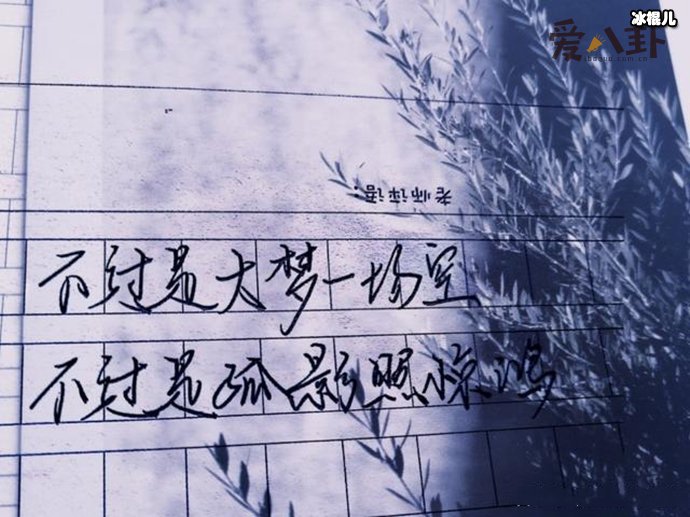 冰棍儿
爱八卦
老师评语：
不过是大梦一场空
不过是孤影照惊鸿